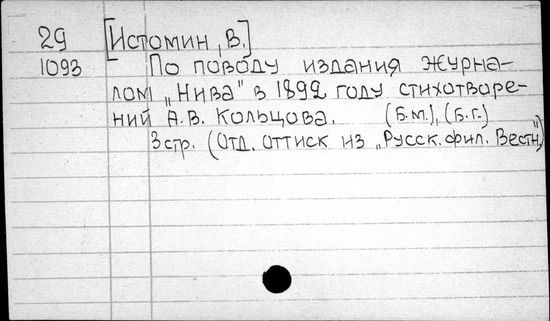 29 [Истомин, В.]
1093 По поводу издания журна-
лом "Нива" в 1892 году стихотворе-
ний А.В. Кольцова. (Б.м.), (Б.г.)
3 стр. (Отд. оттиск из "Русск. фил. Вестн.")